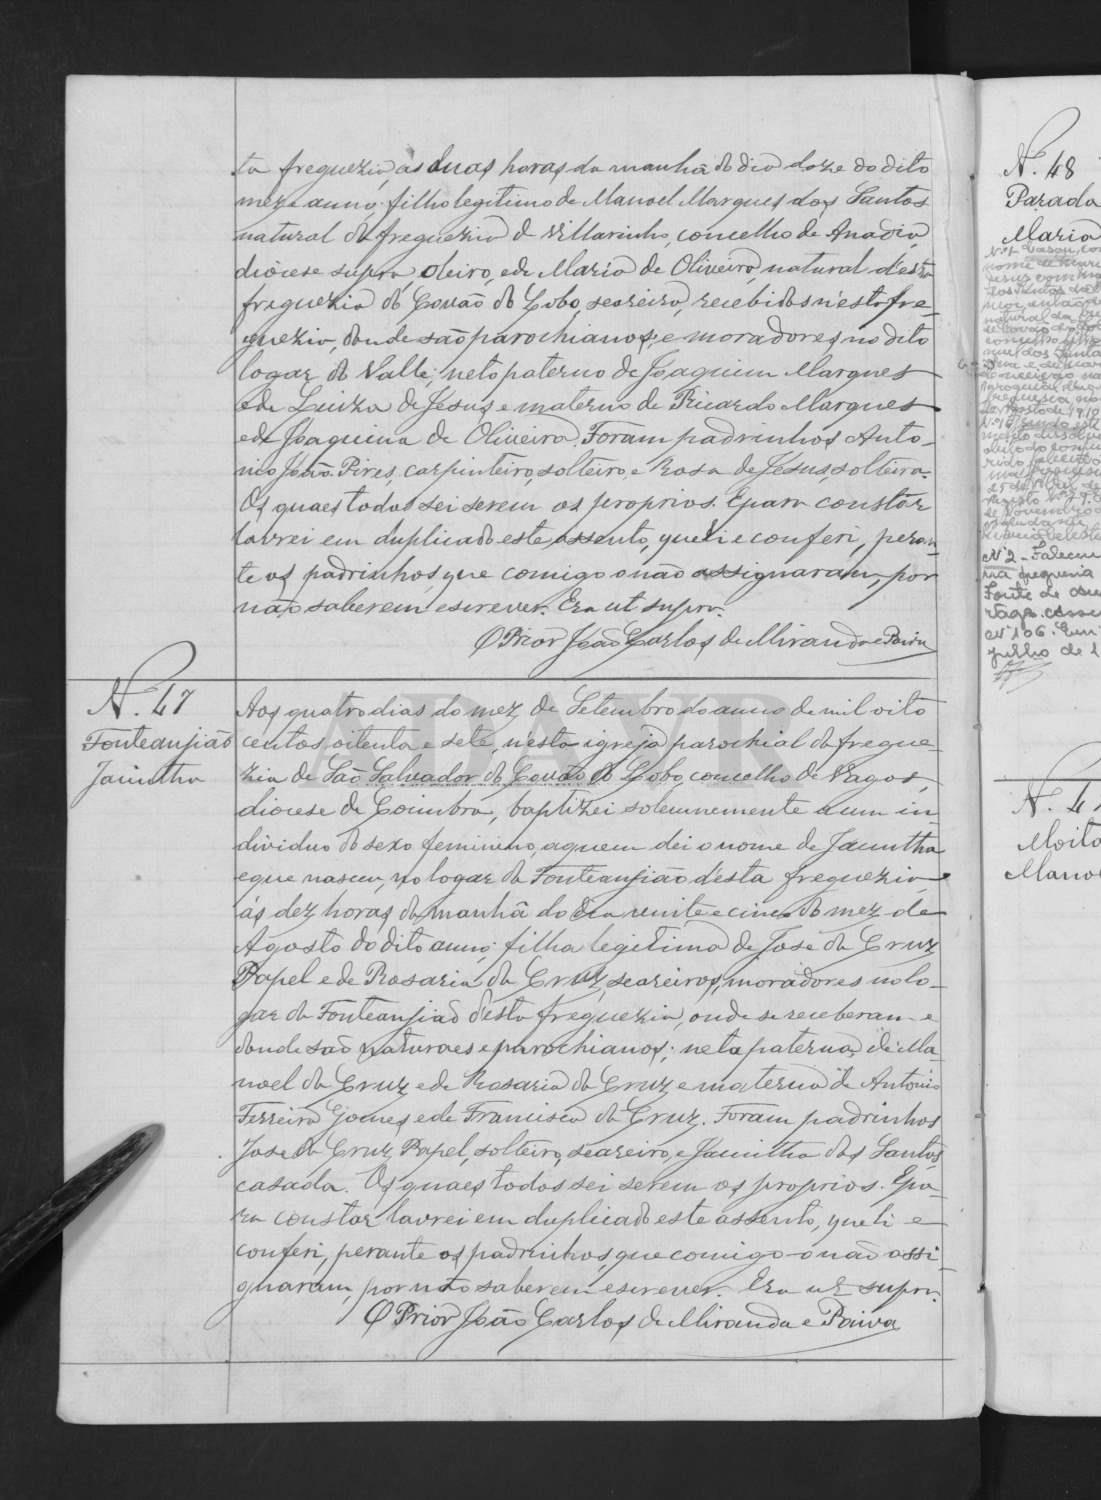 ta freguezia, ás duas horas da manhã do dia doze do dito
mez e anno, filho legitimo de Manoel Marques dos Santos
natural da freguezia de Villarinho, concelho de Anadia,
diocese supra, oleiro, e de Maria de Oliveira, natural d'esta
freguezia do Covão do Lobo, seareira, recebidos n'esta fre-
guezia, donde são parochianos, e moradores no dito
logar do Valle; neto paterno de Joaquim Marques
e de Luiza de Jesus e materno de Ricardo Marques
e de Joaquina de Oliveira. Foram padrinhos Anto-
nio João Pires, carpinteiro, solteiro, e Rosa de Jesus, solteira.
Os quaes todos sei serem os proprios. E para constar
lavrei em duplicado este assento, que li e conferi, peran-
te os padrinhos, que comigo o não assignaram, por
não saberem escrever. Era ut supra.
O Prior João Carlos de Miranda e Paiva
N. 47
Fonteanjião
Jacintha
Aos quatro dias do mez de Setembro do anno de mil oito
centos oitenta e sete, n'esta igreja parochial da fregue-
zia de São Salvador do Covão do Lobo, concelho de Vagos,
diocese de Coimbra, baptizei solemnemente a um in-
dividuo do sexo feminino, a quem dei o nome de Jacintha
e que nasceu, no logar da Fonteanjião d'esta freguezia,
ás dez horas da manhã do dia vinte e cinco do mez de
Agosto do dito anno; filha legitima de José da Cruz
Papel e de Rosaria da Cruz, seareiros, moradores no lo-
gar da Fonteanjião d'esta freguezia, onde se receberam e
donde são naturaes e parochianos; neta paterna de Ma-
noel da Cruz e de Rosaria da Cruz e materna de Antonio
Ferreira Gomes e de Francisca da Cruz. Foram padrinhos
José da Cruz Papel, solteiro, seareiro, e Jacintha dos Santos
casada. Os quaes todos sei serem os proprios. E pa-
ra constar lavrei em duplicado este assento, que li e
conferi, perante os padrinhos, que comigo o não assi-
gnaram, por não saberem escrever. Era ut supra.
O Prior João Carlos de Miranda e Paiva
ADAVR
N. 48
Parada
Maria
N. 4
Moita
Mano